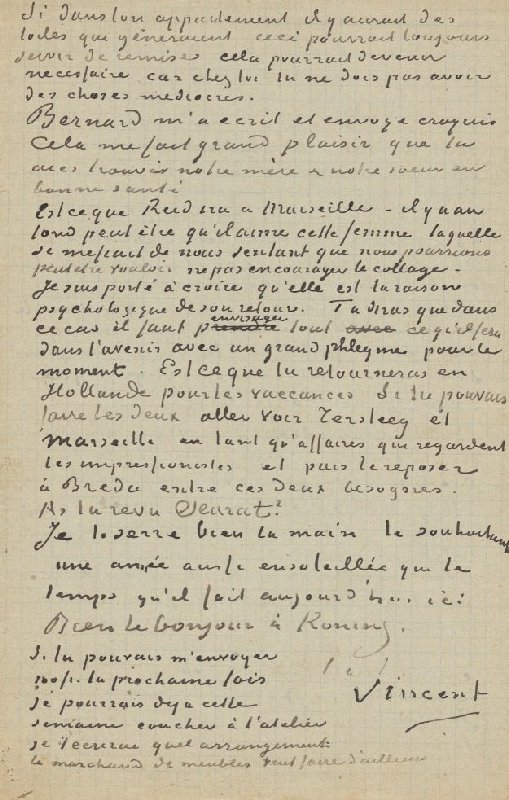 Si dans ton appartement il y aurait des
toiles qui gêneraient ceci pourrait toujours
servir de remises cela pourrait devenir
necessaire car chez toi tu ne dois pas avoir
des choses mediocres.
Bernard m'a ecrit et envoyé croquis
Cela me fait grand plaisir que tu
aies trouvés notre mère & notre soeur en
bonne santé
Est ce que Reid sera a Marseille – il y a au
fond peut être qu'il aime cette femme laquelle
se mefiait de nous sentant que nous pourrions
peut etre vouloir ne pas encourager le collage –
Je suis porté à croire qu'elle est la raison
psychologique de son retour. Tu diras que dans
ce cas il faut prendre envisager tout avec ce qu'il fera
dans l'avenir avec un grand phlegme pour le
moment. Est ce que tu retourneras en
Hollande pour les vaccances Si tu pouvais
faire les deux aller voir Tersteeg et
Marseille en tant qu'affaires qui regardent
les impressionistes et puis te reposer
à Breda entre ces deux besognes.
As tu revu Seurat?
Je te serre bien la main te souhaitant
une année aussi ensoleillée que le
temps qu'il fait aujourd'hui ici
Bien le bonjour à Koning.
Si tu pouvais m'envoyer
100 fr. la prochaine fois
je pourrais deja cette
semaine coucher à l'atelier
je t'ecrirai quel arrangement
le marchand de meubles veut faire d'ailleurs
t. à t.
Vincent